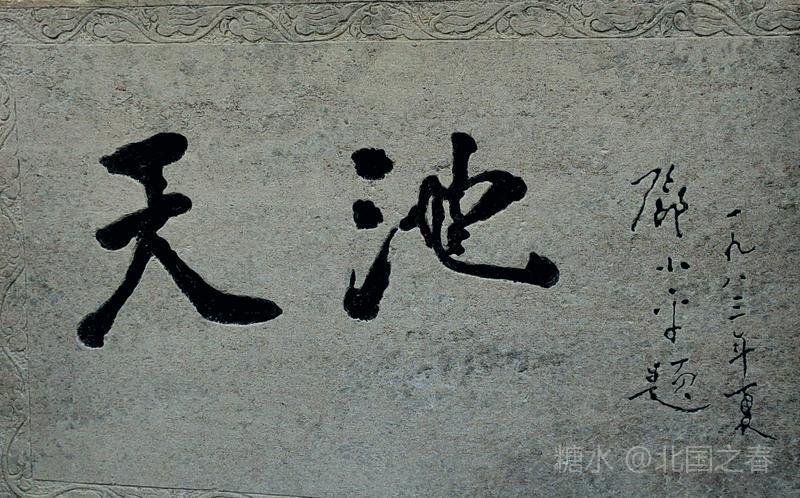 天池
一九八三年夏
邓小平题
糖水 @北国之春